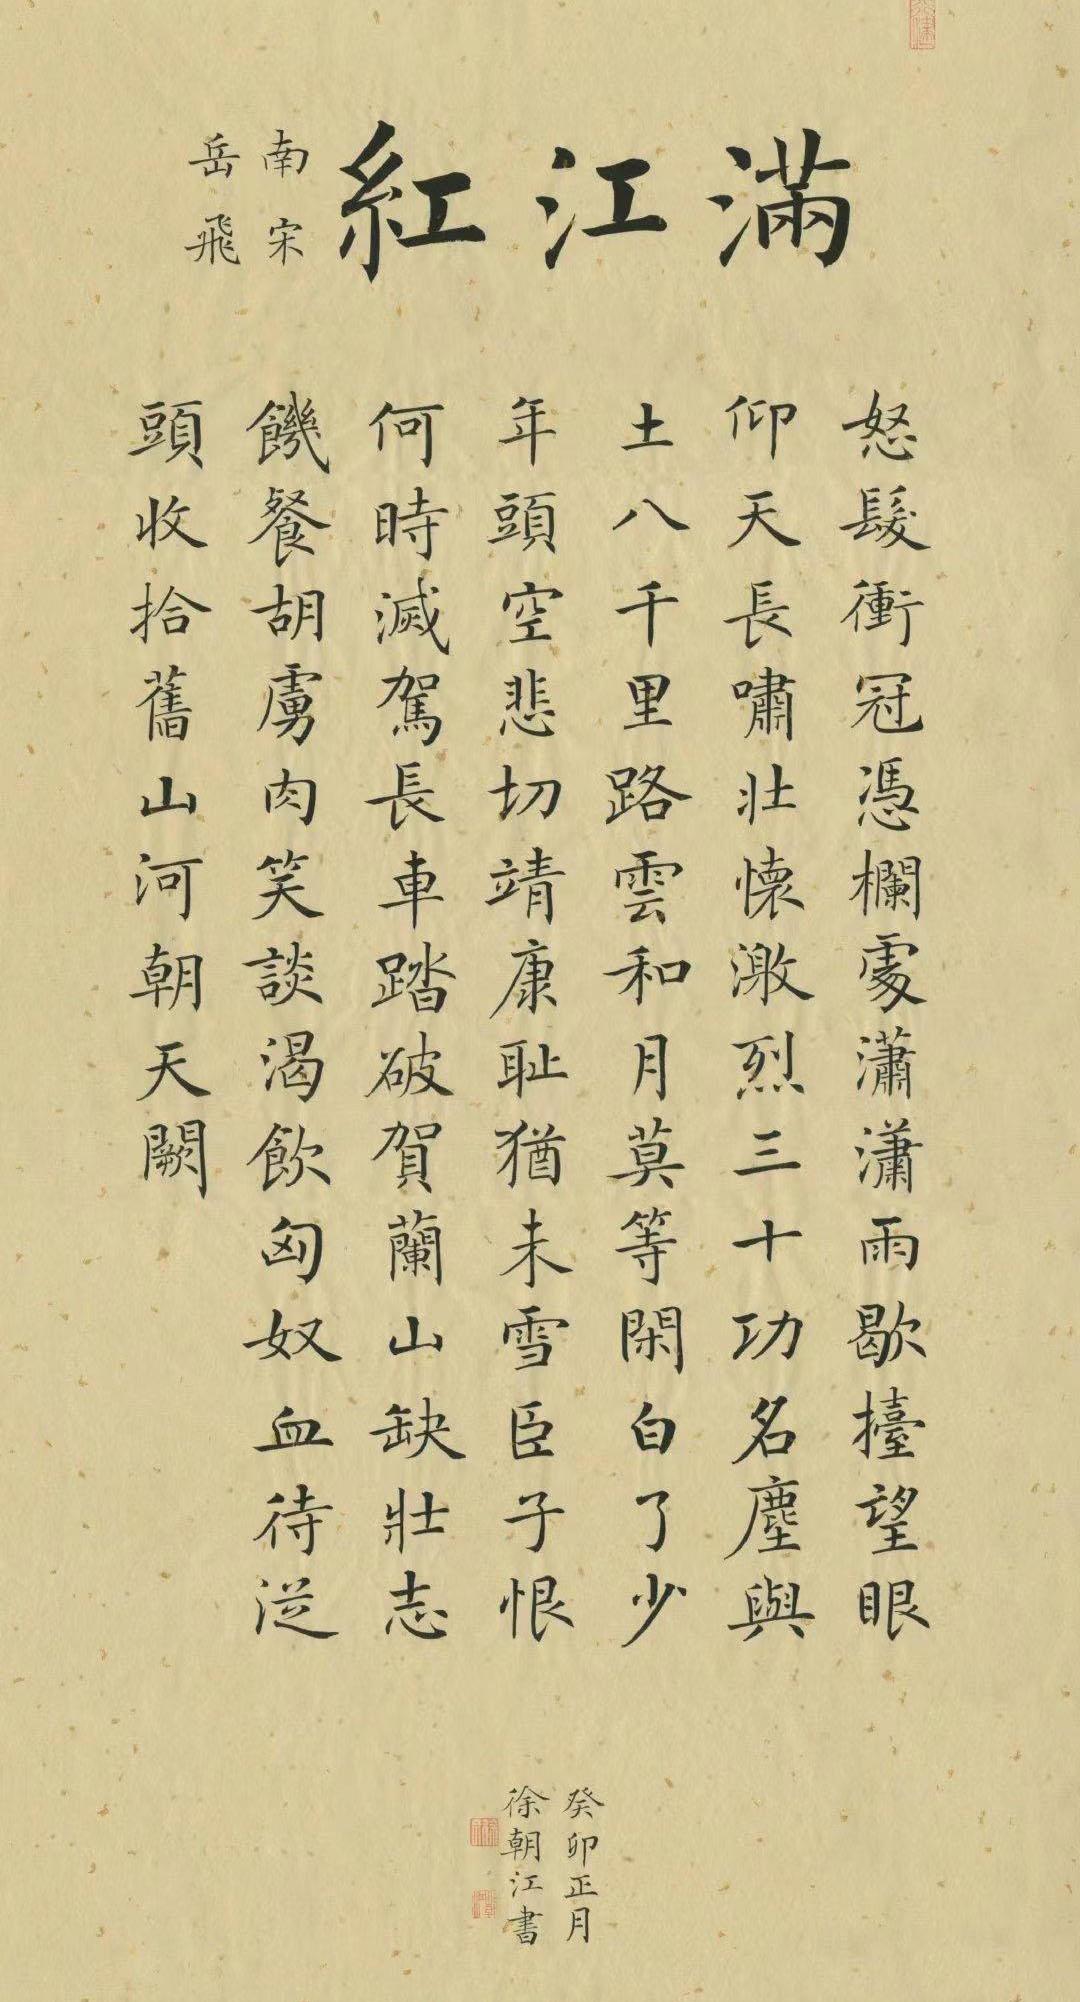 滿江紅
南宋
岳飛
怒髮衝冠憑欄處瀟瀟雨歇擡望眼
仰天長嘯壯懷激烈三十功名塵與
土八千里路雲和月莫等閑白了少
年頭空悲切靖康耻猶未雪臣子恨
何時滅駕長車踏破賀蘭山缺壯志
饑餐胡虜肉笑談渴飲匈奴血待從
頭收拾舊山河朝天闕
癸卯正月
徐朝江書